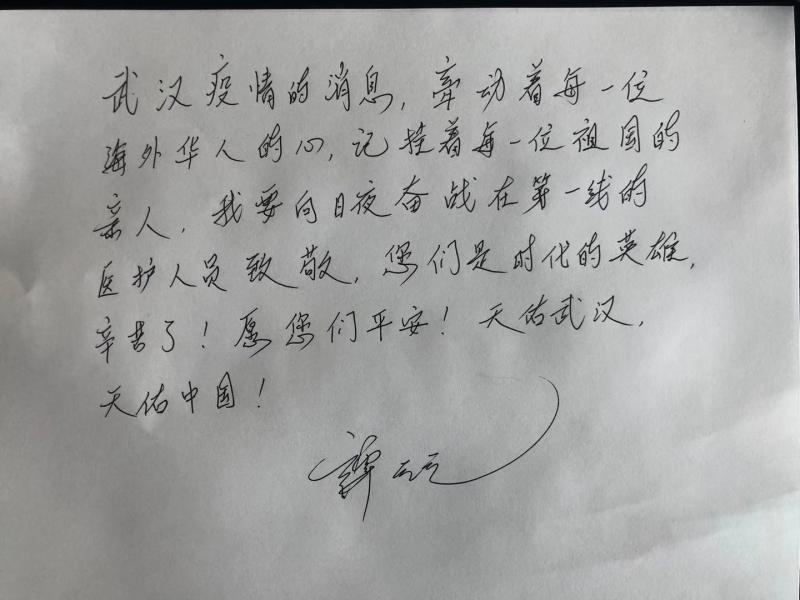 武汉疫情的消息，牵动着每一位
海外华人的心，记挂着每一位祖国的
亲人，我要向日夜奋战在第一线的
医护人员致敬，您们是时代的英雄，
辛苦了！愿您们平安！天佑武汉，
天佑中国！